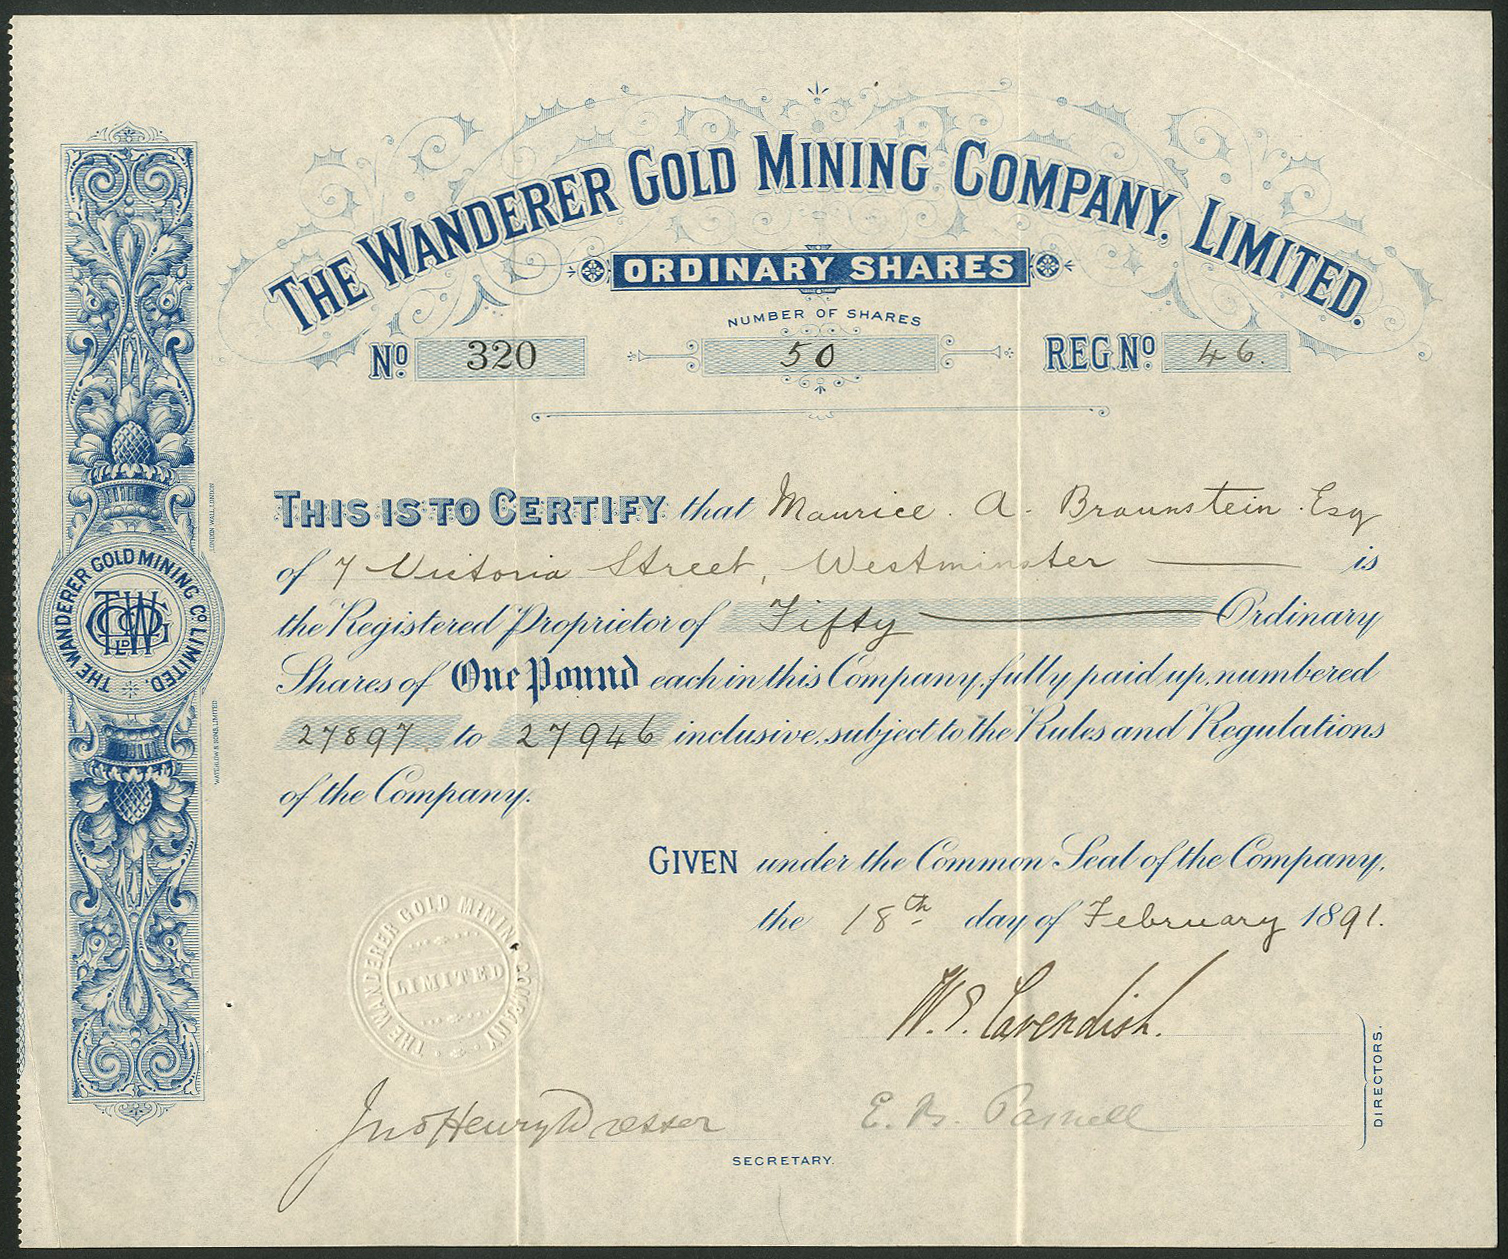 THE WANDERER GOLD MINING COMPANY, LIMITED.
ORDINARY SHARES
NUMBER OF SHARES
No 320 50 REG. No 46.
THIS IS TO CERTIFY that Maurice. A. Braunstein Esq
of 7 Victoria Street, Westminster — is
the Registered Proprietor of Fifty — Ordinary
Shares of One Pound each in this Company, fully paid up, numbered
27897 to 27946 inclusive, subject to the Rules and Regulations
of the Company.
GIVEN under the Common Seal of the Company,
the 18th day of February 1891.
W. S. Cavendish.
Jno Henry Dresser
E. Parnell
DIRECTORS.
SECRETARY.
THE WANDERER GOLD MINING Co LIMITED.
TWGMCo LD
WATERLOW & SONS LIMITED
LONDON WALL, LONDON
THE WANDERER GOLD MINING COMPANY
LIMITED